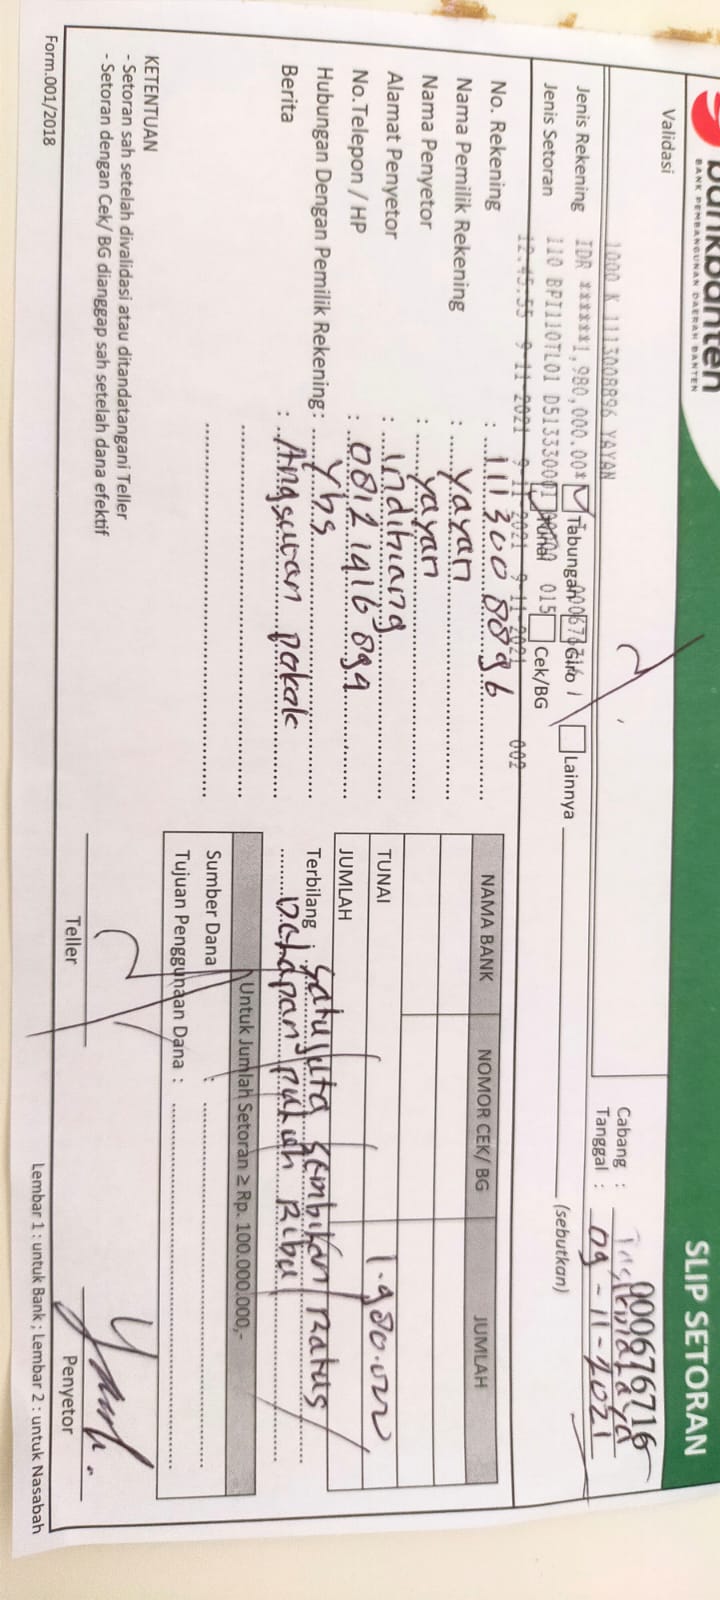 bankbanten
BANK PEMBANGUNAN DAERAH BANTEN
SLIP SETORAN
000676716
Validasi
1000 K 1113008896 YAYAN
Cabang : Tasikmalaya
Tanggal : 09-11-2021
IDR *******1,980,000.00*
110 BPI110TL01 D51333000
015
12.45.55 9-11-2021 9-11-2021 9-11-2021 002
Jenis Rekening Tabungan Giro Lainnya (sebutkan)
Jenis Setoran Tunai Cek/BG
No. Rekening : 1113008896
Nama Pemilik Rekening : yayan
Nama Penyetor : yayan
Alamat Penyetor : indihiang
No.Telepon / HP : 0812 1416 894
Hubungan Dengan Pemilik Rekening : Ybs
Berita : Angsuran pokok
NAMA BANK NOMOR CEK/ BG JUMLAH
TUNAI 1.980.000
JUMLAH
Terbilang : satu juta sembilan Ratus
Delapan puluh Ribu
Untuk Jumlah Setoran ≥ Rp. 100.000.000,-
Sumber Dana :
Tujuan Penggunaan Dana :
KETENTUAN
- Setoran sah setelah divalidasi atau ditandatangani Teller
- Setoran dengan Cek/ BG dianggap sah setelah dana efektif
Teller
Penyetor
Form.001/2018
Lembar 1 : untuk Bank ; Lembar 2 : untuk Nasabah